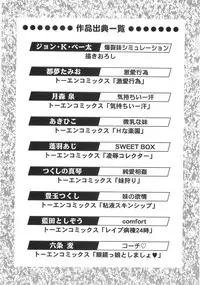 作品出典一覧
ジョン・K・ペー太 爆裂妹シミュレーション
描きおろし
都夢たみお 激愛行為
トーエンコミックス「激愛行為」
月森 泉 気持ちいー汗
トーエンコミックス「気持ちいー汗」
あきひこ 微乳な妹
トーエンコミックス「Hな楽園」
蓬羽あじ SWEET BOX
トーエンコミックス「凌辱コレクター」
つくしの真琴 純愛明暗
トーエンコミックス「妹狩り」
豊玉つくし 妹の欲情
トーエンコミックス「粘液スキンシップ」
藍田としぞう comfort
トーエンコミックス「レイプ病棟24時」
六条 麦 コーチ♡
トーエンコミックス「眼鏡っ娘としましょ♥」